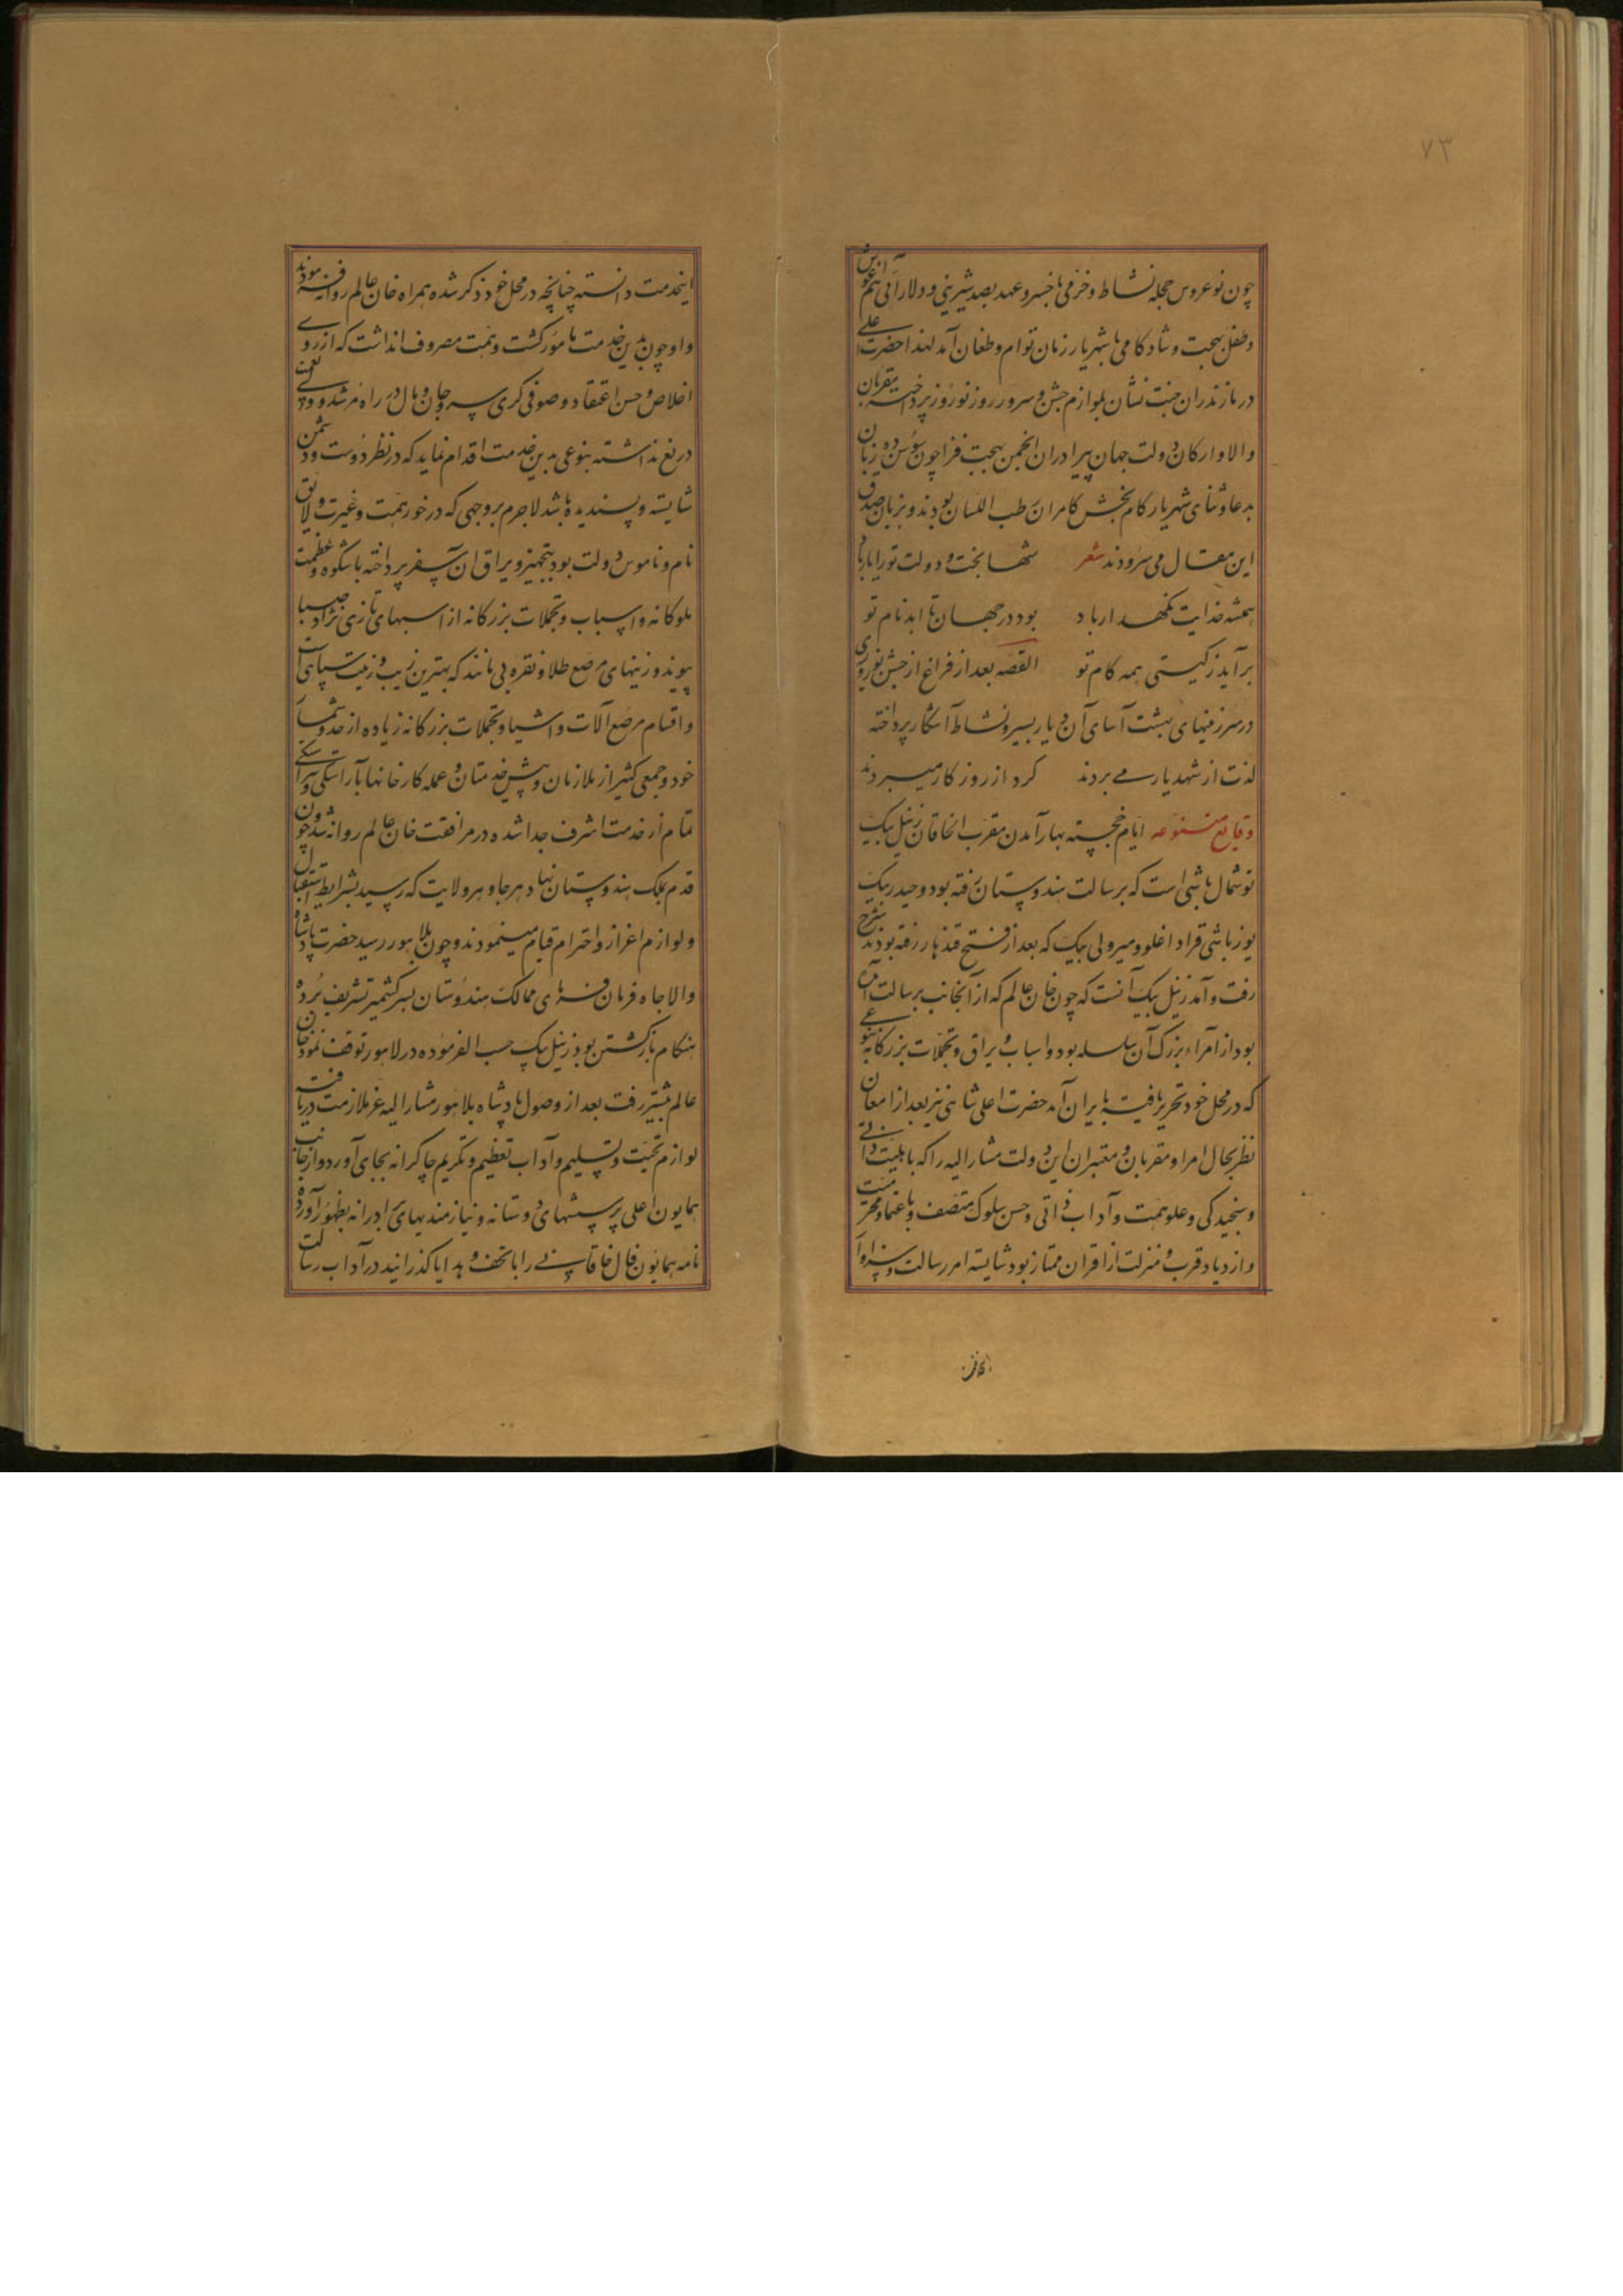 ۷۳
چون نوعروس حجله نشاط و خرمی با خسرو عهد بصد شیرینی و دلارائی هم آغوش
و طفل بهجت و شادکامی با شهریار زمان توام و طغان آمد لهذا حضرت اعلی
در مازندران جنت نشان بلوازم جشن و سرور روز نوروز پرداخته مقربان
والا و ارکان دولت جهان پیرا دران انجمن بهجت فزا چون سوسن ده زبان
بدعا و ثنای شهریار کام بخش کامران رطب اللسان بودند و بزبان صدق
این مقال می سرودند شعر شها بخت و دولت تو را یار باد
همیشه خدایت نگهدار باد بود در جهان تا ابد نام تو
برآید ز گیتی همه کام تو القصه بعد از فراغ از جشن نوروزی
در سرزمینهای بهشت آسای آن دیار بسیر و نشاط شکار پرداخته
لذت از شهد یار می بردند گرد از روزگار میبردند
وقایع متنوعه ایام خجسته بهار آمدن مقرب الخاقان زینل بیک
توشمال باشی است که برسالت هندوستان رفته بود و حیدر بیک
یوزباشی قراداغلو و میر ولی بیک که بعد از فتح قندهار رفته بودند شرح
رفت و آمد زینل بیک آنست که چون خان عالم که از آنجانب برسالت آمده
بود از امراء بزرگ آن سلسله بود و اسباب و یراق و تجملات بزرگانه بنوعی
که در محل خود تحریر یافته بایران آمد حضرت اعلی شاهی نیز بعد از امعان
نظر بحال امرا و مقربان و معتبران این دولت مشار الیه را که بابلیت ذاتی
و سنجیدگی و علو همت و آداب دانی و حسن سلوک متصف و باعتماد و محرمیت
و ازدیاد قرب و منزلت از اقران ممتاز بود شایسته امر رسالت و سزاوار
اینخدمت دانسته چنانچه در محل خود ذکر شده همراه خان عالم روانه فرمودند
و او چون بدین خدمت مامور گشت و همت مصروف انداشت که از روی
اخلاص و حسن اعتقاد و صوفی گری سر و جان و مال در راه مرشد و ولی نعمت
دریغ نداشته بنوعی بدین خدمت اقدام نماید که در نظر دوست و دشمن
شایسته و پسندیده باشد لاجرم بر وجهی که در خور همت و غیرت و لایق
نام و ناموس دولت بود بتجهیز و یراق ان سفر پرداخته باشکوه و عظمت
ملوکانه و اسباب و تجملات بزرگانه از اسبهای تازی نژاد صبا
پیوند و زینهای مرصع طلا و نقره بی مانند که بهترین زیب و زینت سپاهی است
و اقسام مرصع آلات و اشیا و تجملات بزرگانه زیاده از حد و شمار
خود و جمعی کثیر از ملازمان و پیش خدمتان و عمله کارخانها بآراستگی و پیراستگی
تمام از خدمت اشرف جدا شده در مرافقت خان عالم روانه شد و چون
قدم بملک هندوستان نهاد هر جا و هر ولایت که رسید بشرایط استقبال
و لوازم اعزاز و احترام قیام مینمودند و چون بلاهور رسید حضرت پادشاه
والاجاه فرمان فرمای ممالک هندوستان بسیر کشمیر تشریف برده
هنگام بازگشتن بود زینل بیک حسب الفرموده در لاهور توقف نمود خان
عالم پیشتر رفت بعد از وصول پادشاه بلاهور مشار الیه عز ملازمت دریافته
لوازم تحیت و تسلیم و آداب تعظیم و تکریم چاکرانه بجای آورد و از جانب
همایون اعلی پرسشهای دوستانه و نیازمندیهای برادرانه بظهور آورده
نامه همایون فال خاقانی را با تحف و هدایا گذرانید در آداب رسالت